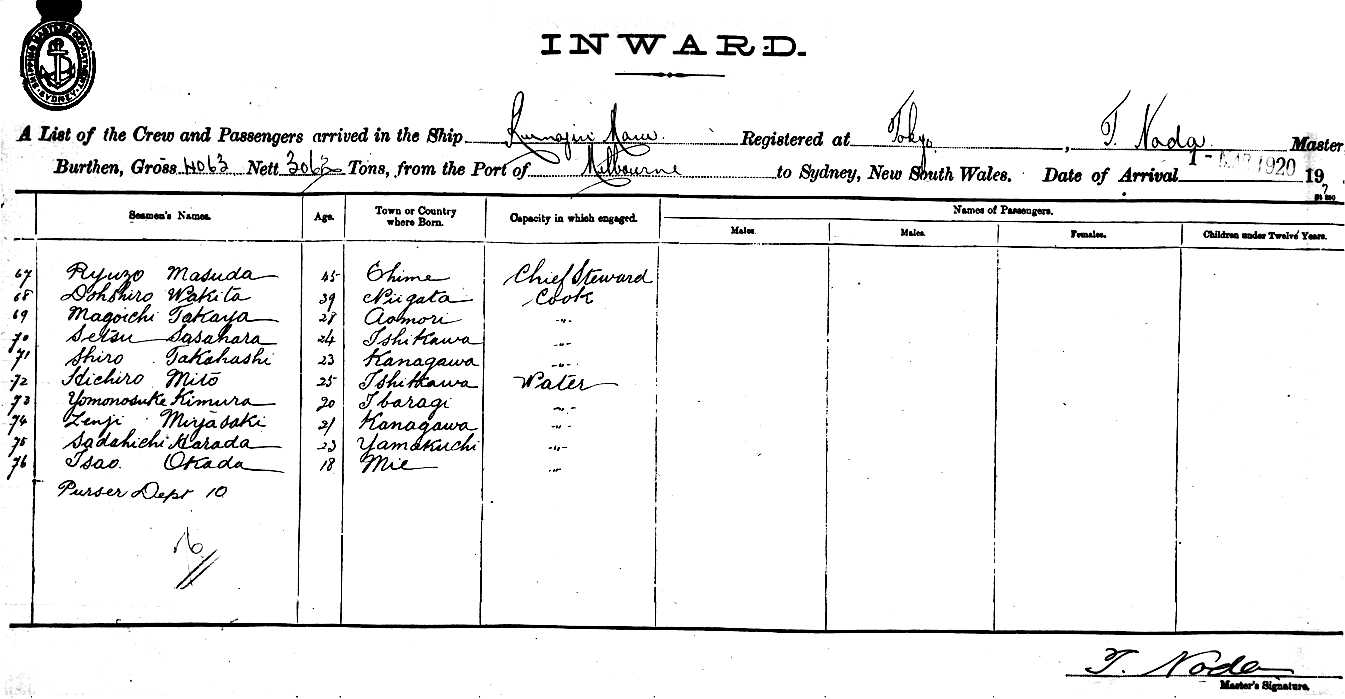 SHIPPING MASTERS DEPARTMENT SYDNEY
INWARD.
A List of the Crew and Passengers arrived in the Ship Maru. Registered at Tokyo, T. Noda Master
Burthen, Gross 4063 Nett 3063 Tons, from the Port of Melbourne to Sydney, New South Wales. Date of Arrival 1 - 1920 19
Seamen's Names. Age. Town or Country where Born. Capacity in which engaged. Names of Passengers.
Males. Males. Females. Children under Twelve Years.
67 Ryuzo Masuda 45 Ehime Chief Steward
68 Dohshiro Wakita 39 Niigata Cook
69 Magoichi Takaya 28 Aomori -"-
70 Setsu Sasahara 24 Ishikawa -"-
71 Shiro Takahashi 23 Kanagawa -"-
72 Hichiro Mito 25 Ishikawa Water
73 Yomonosuke Kimura 20 Ibaragi -"-
74 Zenji Miyasaki 21 Kanagawa -"-
75 Sadahichi Harada 23 Yamakuchi -"-
76 Isao Okada 18 Mie -"-
Purser Dept 10
T. Noda
Master's Signature.